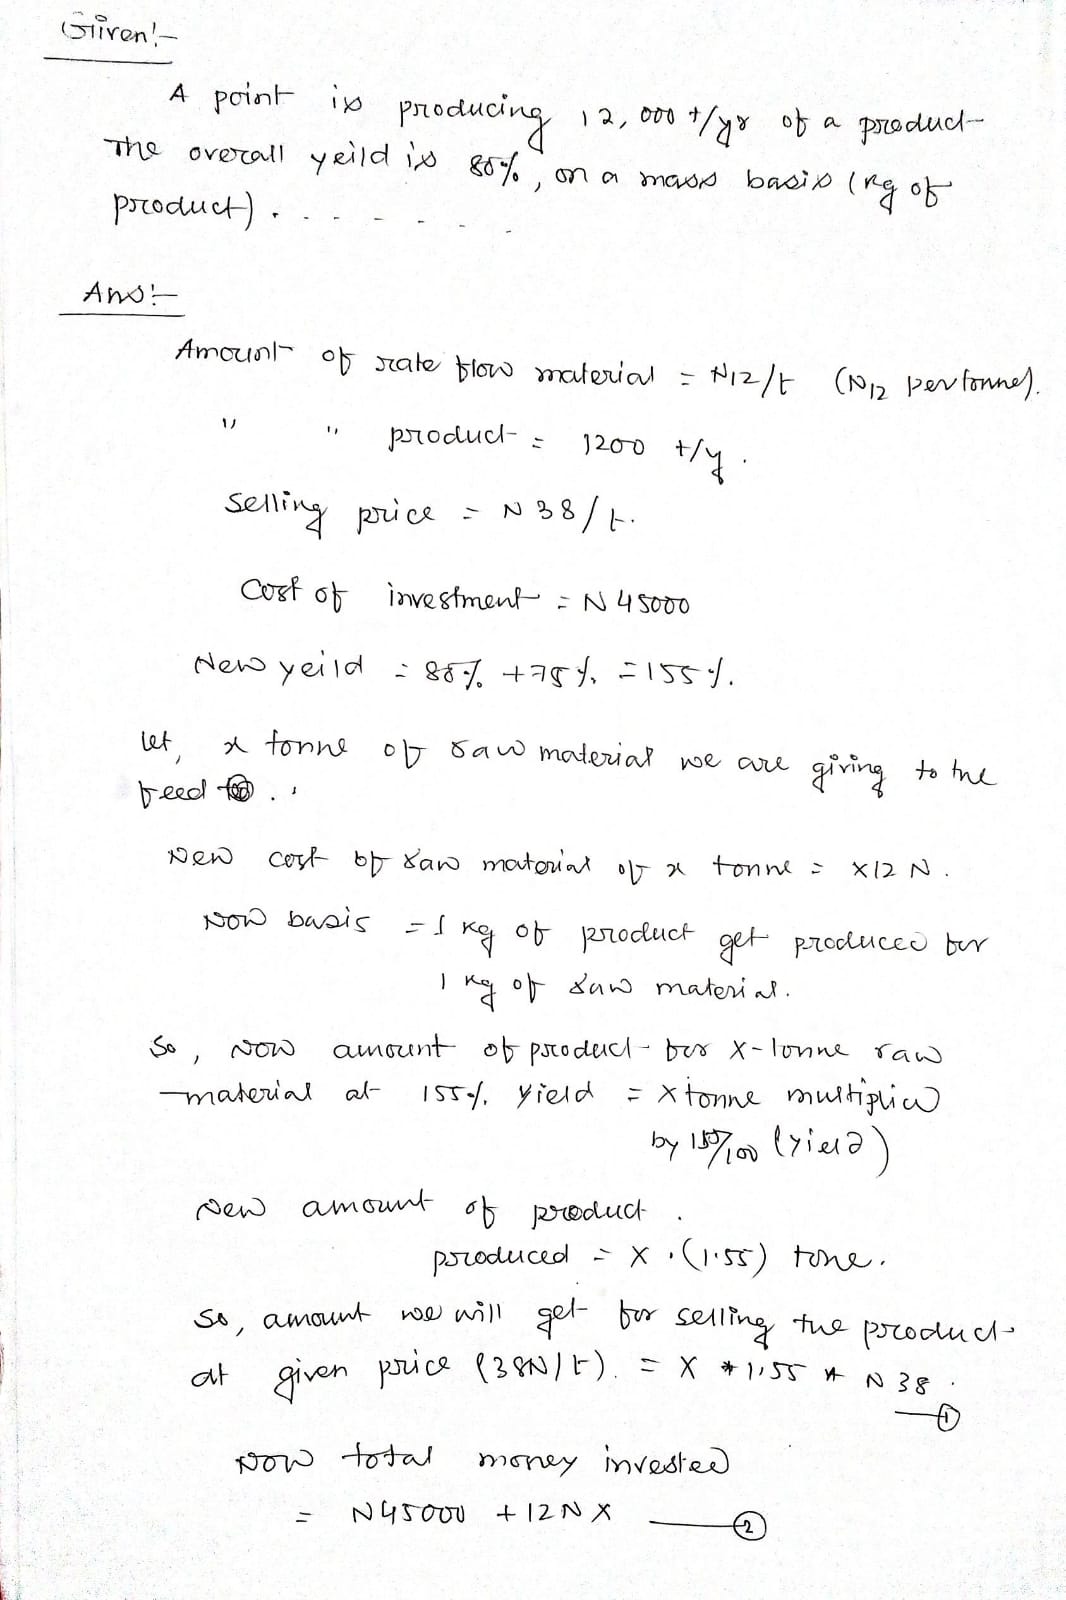 Given:-
A point is producing 12,000 t/yr of a product
The overall yeild is 80%, on a mass basis (kg of
product). . . . . . . .
Ans:-
Amount of rate flow material = N12/t (N12 per tonne).
" " product = 1200 t/y.
Selling price = N 38/t.
Cost of investment = N 45000
New yeild = 80% + 75% = 155%.
let, x tonne of raw material we are giving to the
feed .
New cost of raw material of x tonne = x12 N.
Now basis = 1 kg of product get produced for
1 kg of raw material.
So, Now amount of product for x-tonne raw
material at 155% yield = x tonne multiplied
by 155/100 (yield)
New amount of product.
produced = x . (1.55) tone.
So, amount we will get for selling the product
at given price (38N/t). = x * 1.55 * N 38.
①
Now total money invested
= N45000 + 12Nx ②